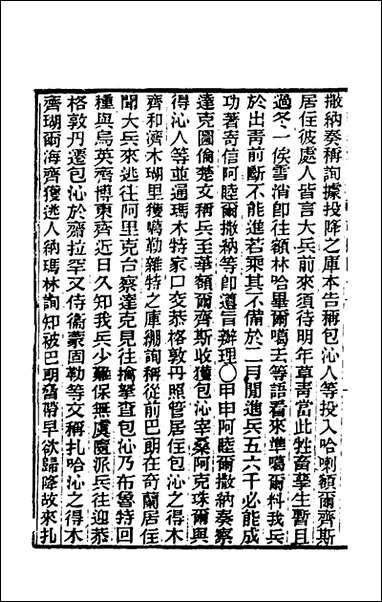 撒納奏稱詢據投降之庫本告稱包沁人等投入哈喇額爾齊斯
居住彼處人皆言大兵前來須待明年草靑當此牲畜孳生暫且
過冬一俟雪消卽往額林哈畢爾噶去等語看來準噶爾料我兵
於出靑前斷不能進若乘其不備於二月閒進兵五六千必能成
功著寄信阿睦爾撒納等卽遵旨辦理〇甲申阿睦爾撒納奏察
達克圖倫楚文稱兵至華額爾齊斯收獲包沁宰桑阿克珠爾與
得沁人等並逋瑪木特家口交恭格敦丹照管居住包沁之得木
齊和濟木瑚里獲噶勒雜特之庫綳詢稱從前巴朗在奇蘭居住
聞大兵來逃往阿里克古察達克見往擒拏查包沁乃布魯特回
種與烏英齊博東齊近日久知我兵少難保無虞隨派兵往迎恭
格敦丹遷包沁於齋拉罕又侍衞蒙固勒等文稱扎哈沁之得木
齊瑚爾海齊獲逃人納瑪林詢知被巴朗脅帶早欲歸降故來扎